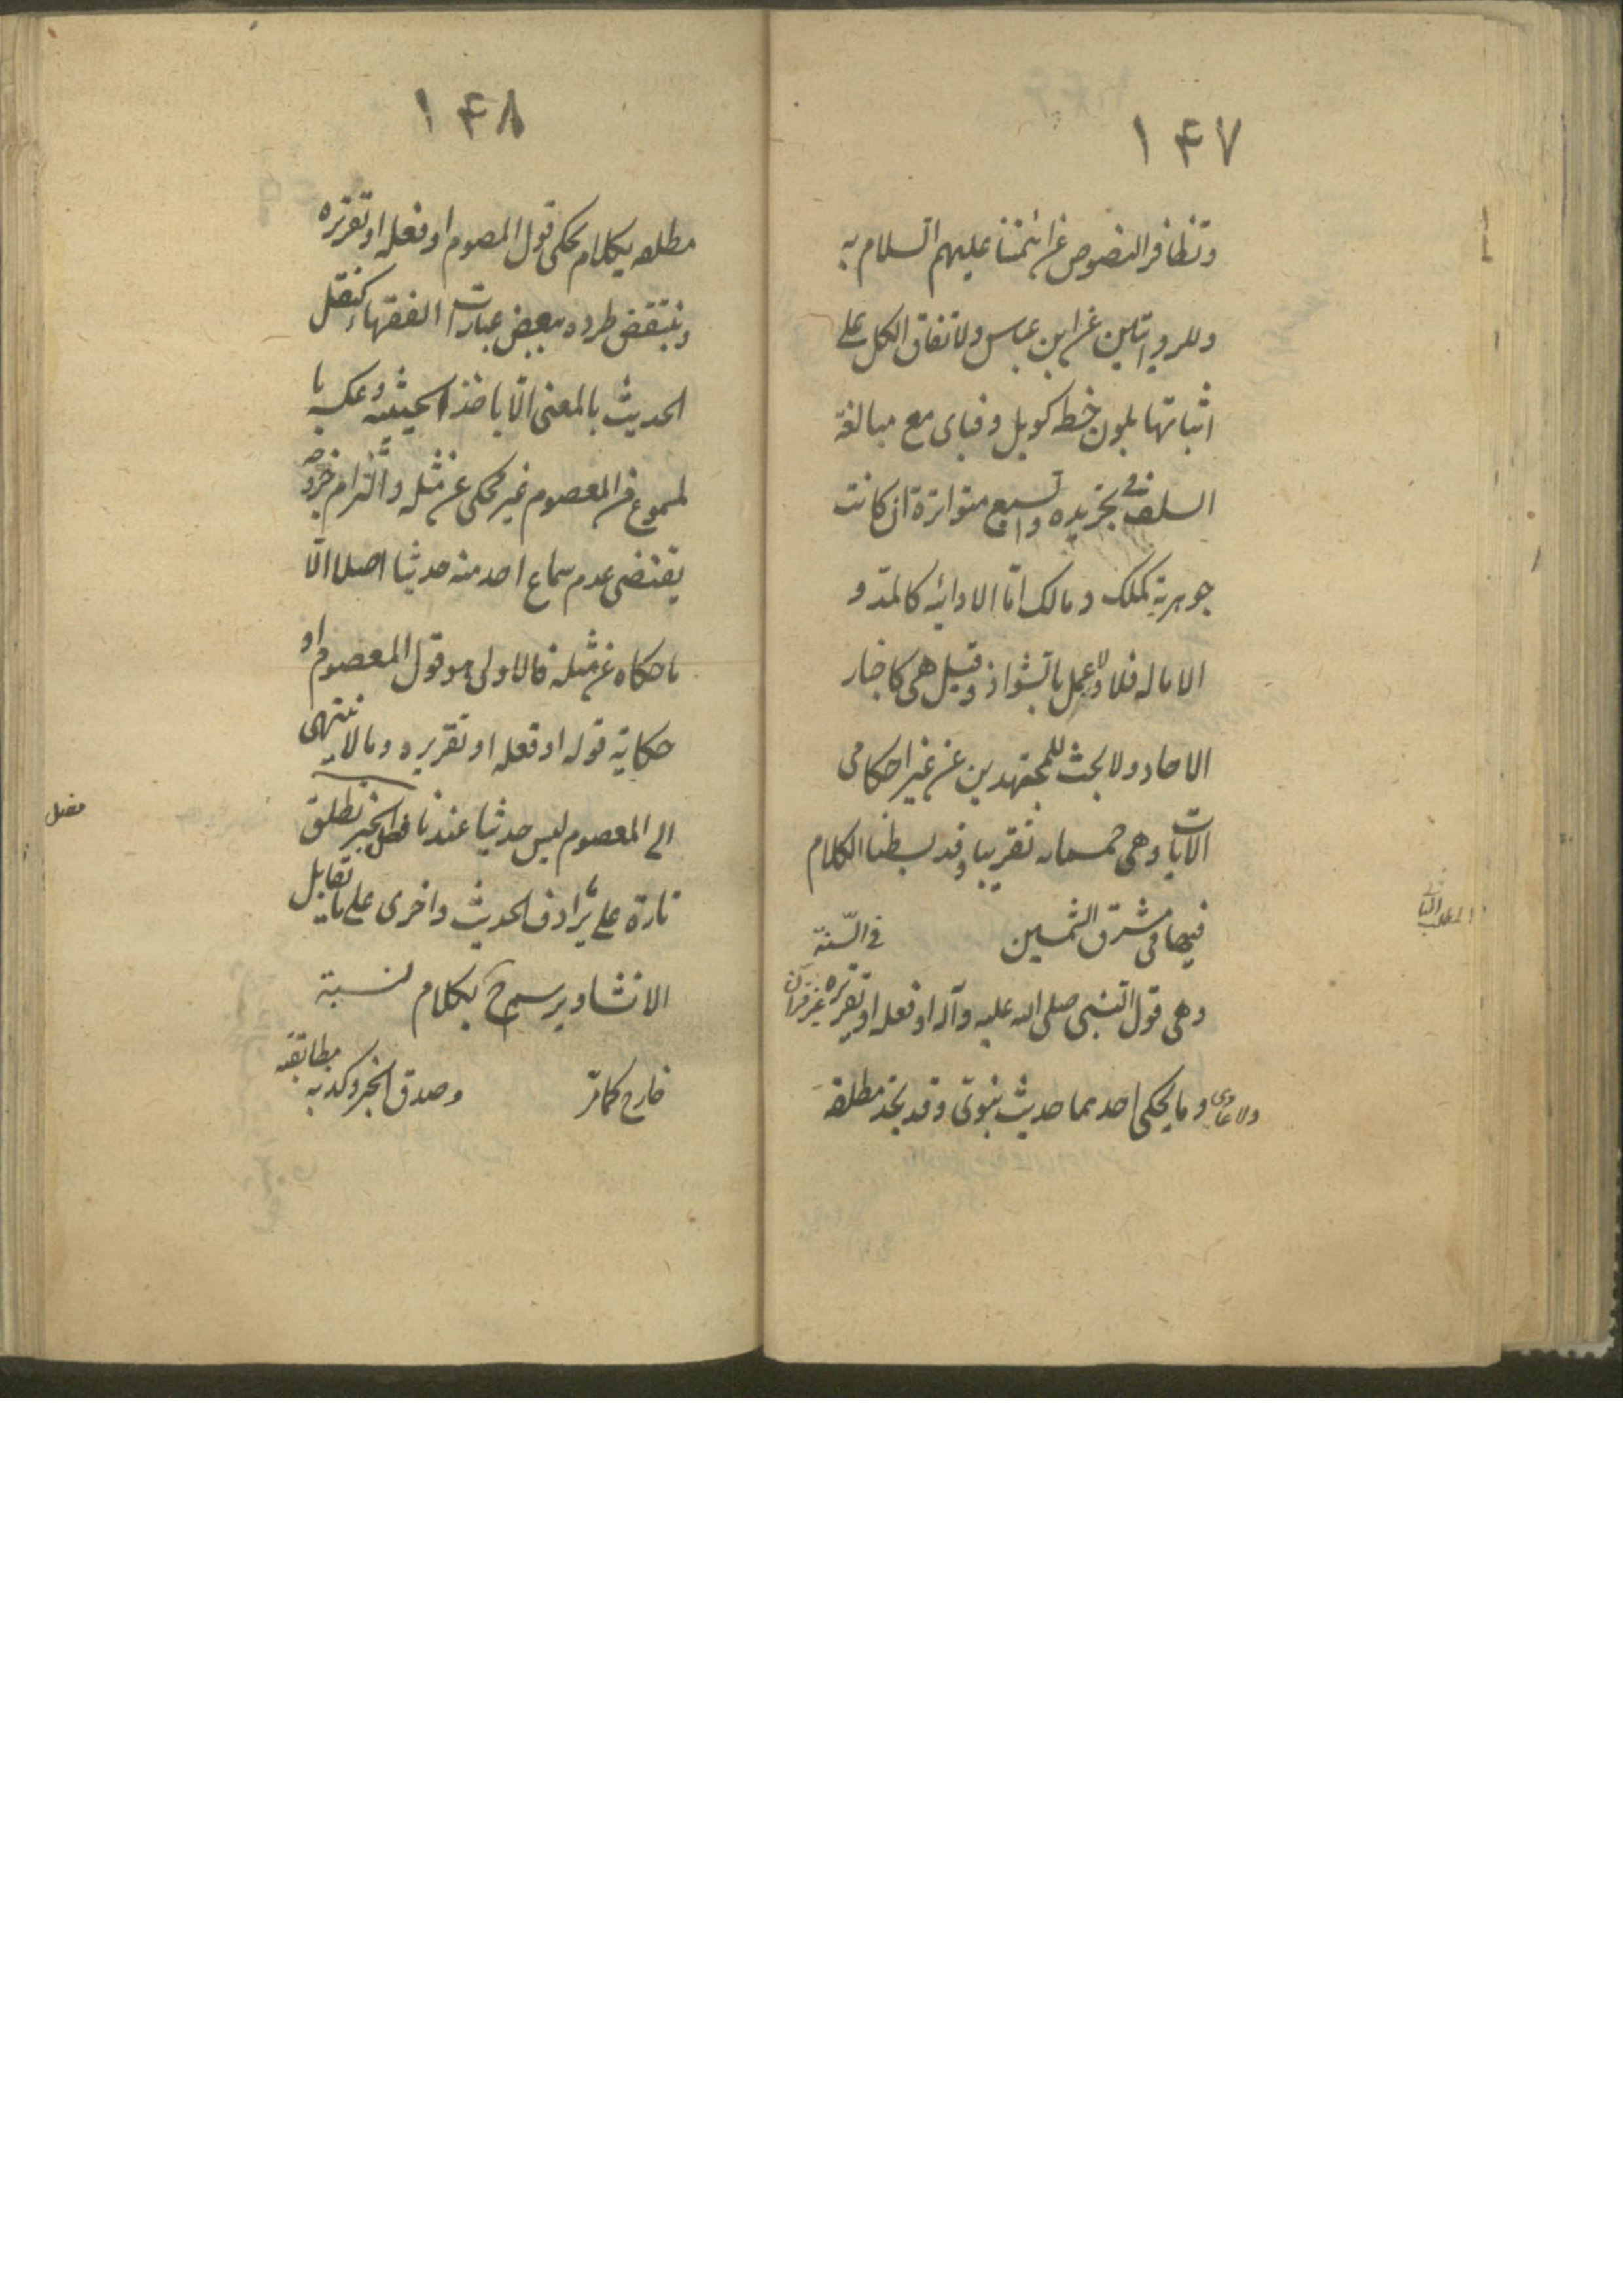 ١۴٧
وتظافر النصوص عن ائمتنا عليهم السلام به
وللروايتين عن ابن عباس ولاتفاق الكل على
اثباتها بلون خطه كويل وفباى مع مبالغة
السلف فى تجريده والسبع متواترة ان كانت
جوهرية كملك ومالك اما الادائية كالمد و
الاماله فلا ولا عمل بالشواذ وقيل هى كاخبار
الاحاد ولا بحث للمجتهدين عن غير احكامى
الايات وهى خمسمائه تقريبا وقد بسطنا الكلام
فيها فى مشرق الشمسين فى السنة
وهى قول النبى صلى الله عليه وآله او فعله او تقريره غير قرآن
ولا عادى وما يحكى احدهما حديث نبوى وقد يحد مطلقه
المطلب الثانى
١۴٨
مطلقه بكلام يحكى قول المعصوم او فعله او تقريره
وينتقض طرده ببعض عبارات الفقهاء كنقل
الحديث بالمعنى الا باخذ الحيثية وعكسه با
لمسموع من المعصوم غير محكى عن مثله والتزام خروجه
يقتضى عدم سماع احد منه حديثا اصلا الا
ما حكاه عن مثله فالاولى هو قول المعصوم او
حكاية قوله او فعله او تقريره وما لا ينتهى
الى المعصوم ليس حديثا عندنا فصل الخبر تطلق
تارة على ما يرادف الحديث واخرى على ما يقابل
الانشاء ويرسم ح بكلام لنسبته
خارج كما مر وصدق الخبر وكذبه مطابقته
فصل